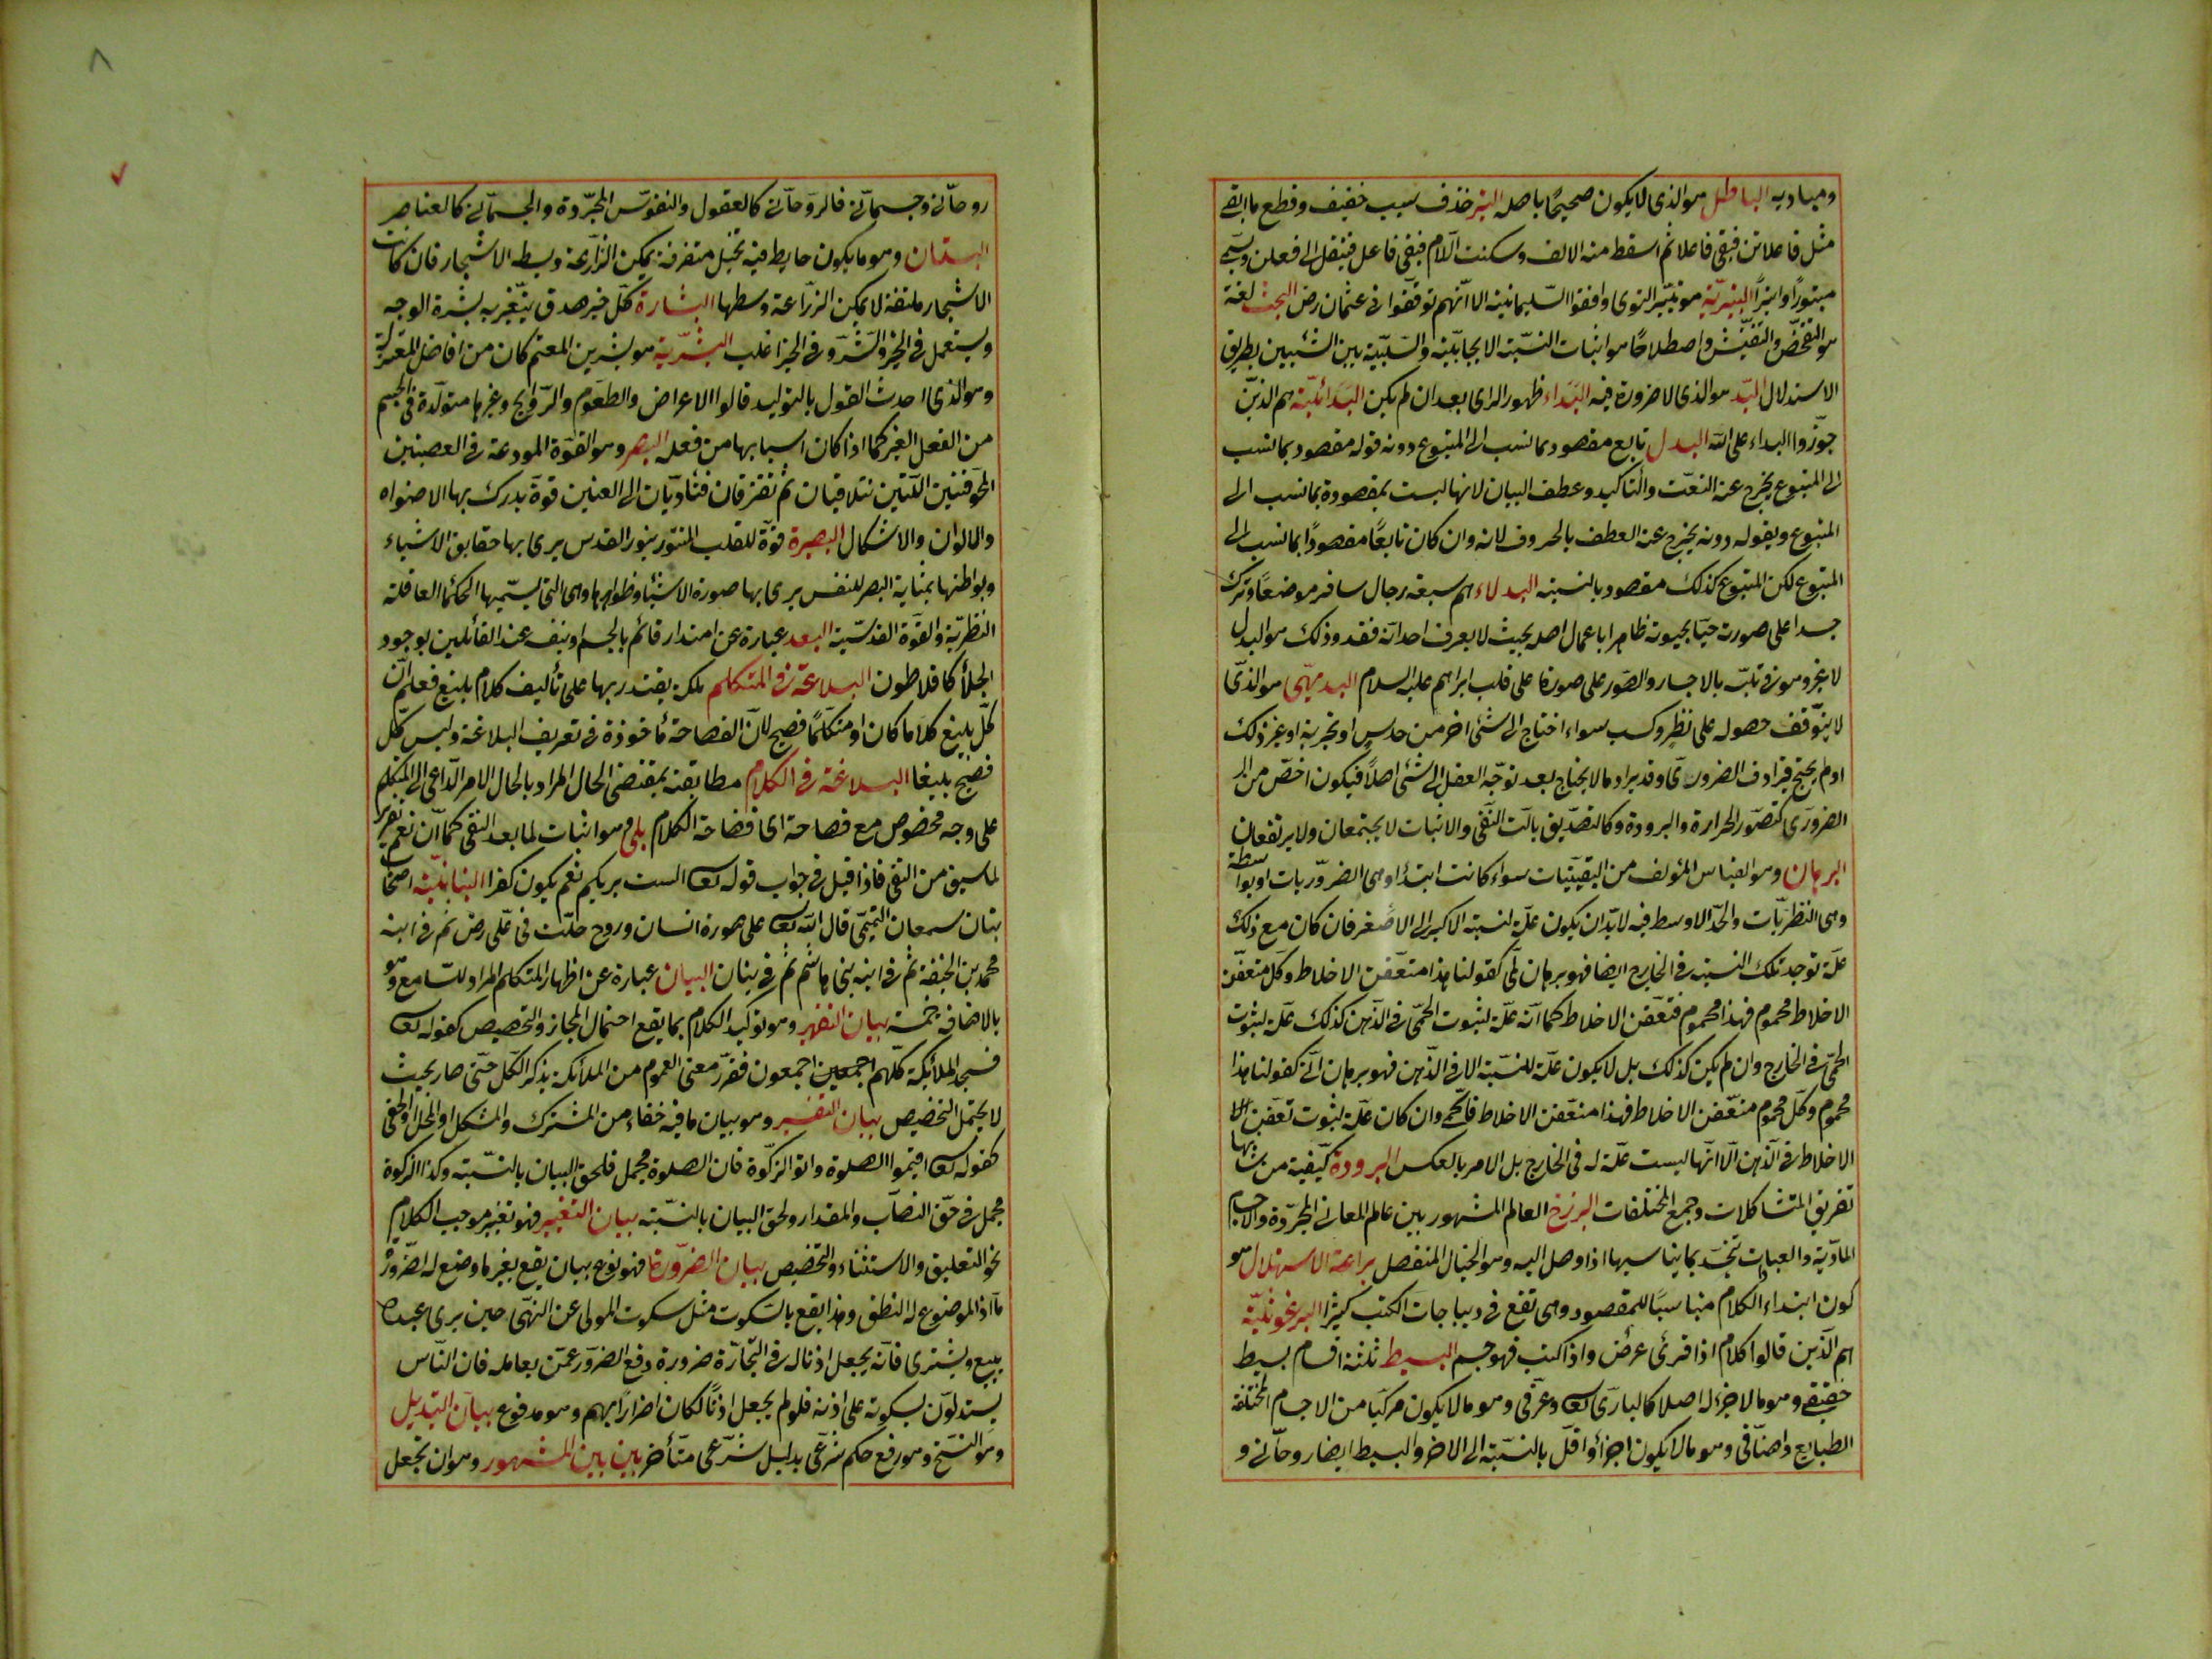 ومباديه الباطل هو الذى لا يكون صحيحًا باصله البتر حذف سبب خفيف وقطع ما بقى
مثل فاعلاتن فبقى فاعلا ثم اسقط منه الالف وسكنت اللام فبقى فاعل فينقل الى فعلن ويسمى
مبتورًا وابترًا البتيريّة هو بتيّر النوى وافقوا السّليمانيّة الا انّهم توقّفوا فى عثمان رض البحث لغة
هو التفحّص والتفتّيش واصطلاحًا هو اثبات النسّبة الايجابيّة والسّلبيّة بين الشّيئين بطريق
الاستدلال البّد هو الذى لا ضرورة فيه البَدَاء ظهور الراى بعد ان لم يكن البَدَائيّة هم الذين
جوّزوا البداء على الله البدل تابع مقصود بما نسب الى المتبوع دونه قوله مقصود بما نسب
الى المتبوع يخرج عنه النعت والتاكيد وعطف البيان لانها ليست بمقصودة بما نسب الى
المتبوع وبقوله دونه يخرج عنه العطف بالحروف لانه وان كان تابعًا مقصودًا بما نسب الى
المتبوع لكن المتبوع كذلك مقصود بالنسبة البدلاء هم سبعة رجال سافر موضعًا وترك
جسدا على صورته حيّا بحيوته ظاهرا باعمال اصله بحيث لا يعرف احد انّه فقد وذلك هو البدل
لا غير وهو فى تلبّسه بالاجساد والصّور على صورته على قلب ابراهيم عليه السلام البديهىّ هو الذّى
لا يتوّقف حصوله على نظر وكسب سواء احتاج الى شئ اخر من حدس او تجربة او غير ذلك
او لم يحتج فيرادف الضرورىّ وقد يراد ما لا يحتاج بعد توجّه العقل الى شئ اصلاً فيكون اخصّ من
الضرورى كتصوّر الحرارة والبرودة وكالتصدّيق بانّ النّفى والاثبات لا يجتمعان ولا يرتفعان
البرهان وهو القياس المؤلف من اليقينيّات سواء كانت ابتداء وهى الضروريّات او بواسطة
وهى النظريّات والحدّ الاوسط فيه لابدّ ان يكون علّة لنسبة الاكبر الى الاصغر فان كان مع ذلك
علّة توجد تلك النسبة فى الخارج ايضا فهو برهان لمّى كقولنا هذا متعفّن الاخلاط وكلّ متعفّن
الاخلاط محموم فهذا محموم فتعفّن الاخلاط كما انّه علّة لثبوت الحمّى فى الذّهن كذلك علّة لثبوت
الحمّى فى الخارج وان لم يكن كذلك بل لا يكون علّة للنسّبة الا فى الذّهن فهو برهان انّى كقولنا هذا
محموم وكلّ محموم متعفّن الاخلاط فهذا متعفّن الاخلاط فالحمى وان كان علّة لثبوت تعفّن
الاخلاط فى الذّهن الّا انّها ليست علّة له فى الخارج بل الامر بالعكس البرودة كيّفية من شانها
تفريق المتشاكلات وجمع المختلفات البرزخ العالم المشهور بين عالم المعانى المجرّدة والاجسام
المادّية والعبادات تتجسّد بما يناسبها اذا وصل اليه وهو الخيال المنفصل براعة الاستهلال هو
كون ابتداء الكلام مناسبًا للمقصود وهى تقع فى ديباجات الكتب كثيرا البرغوثيّة
هم الّذين قالوا كلام الله اذا قرئ عرض واذا كتب فهو جسم البسيط ثلثة اقسام بسيط
حقيقى وهو مالا جزء له اصلا كالبارى تعـ وعرّفى وهو مالا يكون مركبًا من الاجسام المختلفة
الطبايع واضافى وهو مالا يكون اجزاؤ اقلّ بالنسّبة الى الاخر والبسيط ايضا روحانى و
روحانّى وجسمانّى فالروّحانى كالعقول والنفوس المجرّدة والجسمّانى كالعناصر
البستان وهو ما يكون حايط فيه نخيل متفرقة يمكن الزرّاعة وسط الاشجار فان كانت
الاشجار ملتفة لا يمكن الزرّاعة وسطها البشارة كلّ خبر صدق يتغّير به بشرة الوجه
ويستعمل فى الخير والشّر وفى الخير اغلب البشريّة هو بشر بن المعتمر كان من افاضل المعتزلة
وهو الذى احدث القول بالتوليد قالوا الاعراض والطعوم والرّوايح وغيرها متولّدة فى الجسم
من الفعل الغير كما اذا كان اسبابها من فعله البصر وهو القوّة المودعة فى العصبتين
المجوّفتين اللّتين تتلاقيان ثم تفترقان فتأديّان الى العينين قوّة يدرك بها الاضواء
والالوان والاشكال البصيرة قوّة للقلب المنّور بنور القدس يرى بها حقايق الاشياء
وبواطنها بمثابة البصر للنفس يرى بها صورة الاشياء وظواهرها وهى التى يسمّيها الحكماء العاقلة
النظريّة والقوّة القدسيّة البعد عبارة عن امتداد قائم بالجسم او بنفسه عند القائلين بوجود
الخلأ كافلاطون البلاغة فى المتكلم ملكة يقتدر بها على تأليف كلام بليغ فعلم انّ
كلّ بليغ كلامًا كان او متكلّمًا فصيح لانّ الفصاحة مأخوذة فى تعريف البلاغة وليس كلّ
فصيح بليغا البلاغة فى الكلام مطابقته بمقتضى الحال المراد بالحال الامر الدّاعى الى التكلم
على وجه مخصوص مع فصاحته اى فصاحة الكلام بلى هو اثبات لما بعد النفى كما انّ نعم تقرير
لما سبق من النفى فاذا قيل فى جواب قوله تعـ الست بربكم نعم يكون كفرا البنانيّة اصحاب
بنان بن سمعان التّميمى قال الله تعـ على صورة انسان وروح حلّت فى علّى رض ثم فى ابنه
محمد بن الحنفية ثم فى ابنه ابى هاشم ثم فى بنان البيان عبارة عن اظهار المتكلم المراد للسّامع وهو
بالاضافة خمسة بيان التقرير وهو توكيد الكلام بما يقع احتمال المجاز والتخصيص كقوله تعـ
فسجد الملائكة كلّهم اجمعين اجمعون فقرّر معنى العموم من الملائكة بذكر الكلّ حتّى صار بحيث
لا يحتمل التخصيص بيان التفسير وهو بيان ما فيه خفاء من المشترك والمشكل او المجمل او الخفى
كقوله تعـ اقيموا الصلوة واتو الزكّوة فان الصلوة مجمل فلحق البيان بالنسّبة وكذا الزكوة
مجمل فى حقّ النصاب والمقدار ولحق البيان بالنسّبة بيان التغيير فهو تغيير موجب الكلام
نحو التعليق والاستثناء والتخصيص بيان الضرّورة فهو نوع بيان يقع بغير ما وضع له لضرورة
ما اذ الموضوع له النطق وهذا يقع بالسّكوت مثل سكوت المولى عن النهّى حين يرى عبده
يبيع ويشترى فانّه يجعل اذنا له فى التّجارة ضرورة دفع الضرّر عمّن يعامله فان النّاس
يستدلوّن بسكوته على اذنه فلو لم يجعل اذنًا لكان اضرارًا بهم وهو مدفوع بيان التبّديل
وهو النّسخ وهو رفع حكم شرّعى بدليل شرّعى متأخر بين بين المشهور وهو ان تجعل
٨